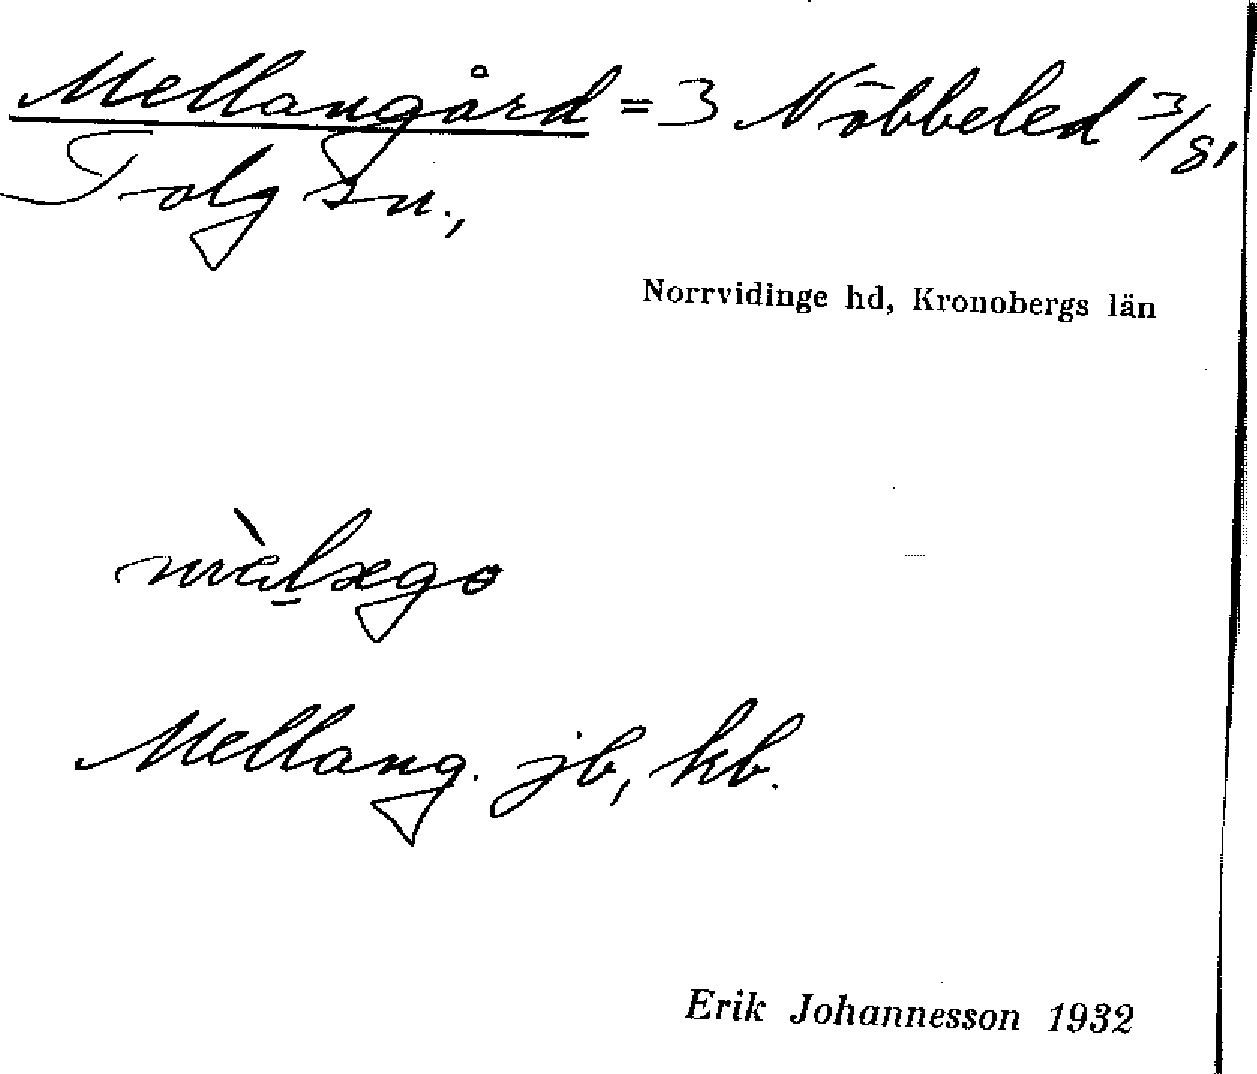 Mellangård = 3 Nöbbeled 3/81
Tolg sn.,
Norrvidinge hd, Kronobergs län
Mellang. jb, kb.
Erik Johannesson 1932